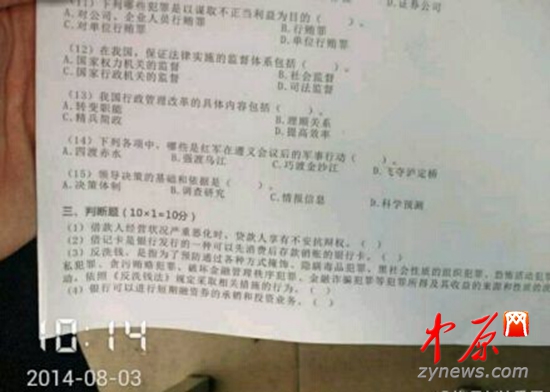 (11)下列哪些犯罪是以谋取不正当利益为目的（ ）。 D.证券公司
A.对公司、企业人员行贿罪 B.行贿罪
C.对单位行贿罪 D.单位行贿罪
(12)在我国，保证法律实施的监督体系包括（ ）。
A.国家权力机关的监督 B.社会监督
C.国家行政机关的监督 D.司法监督
(13)我国行政管理改革的具体内容包括（ ）。
A.转变职能 B.理顺关系
C.精兵简政 D.提高效率
(14)下列各项中，哪些是红军在遵义会议后的军事行动（ ）。
A.四渡赤水 B.强渡乌江 C.巧渡金沙江 D.飞夺泸定桥
(15)领导决策的基础和依据是（ ）。
A.决策体制 B.调查研究 C.情报信息 D.科学预测
三、判断题(10×1=10分)
(1)借款人经营状况严重恶化时，贷款人享有不安抗辩权。（ ）
(2)借记卡是银行发行的一种可以先消费后存款销帐的银行卡。（ ）
(3)反洗钱，是指为了预防通过各种方式掩饰、隐瞒毒品犯罪、黑社会性质的组织犯罪、恐怖活动犯罪
私犯罪、贪污贿赂犯罪、破坏金融管理秩序犯罪、金融诈骗犯罪等犯罪所得及其收益的来源和性质的洗
动，依照《反洗钱法》规定采取相关措施的行为。（ ）
(4)银行可以进行短期融资券的承销和投资业务。（ ）
10:14
2014-08-03
中原网
zynews.com